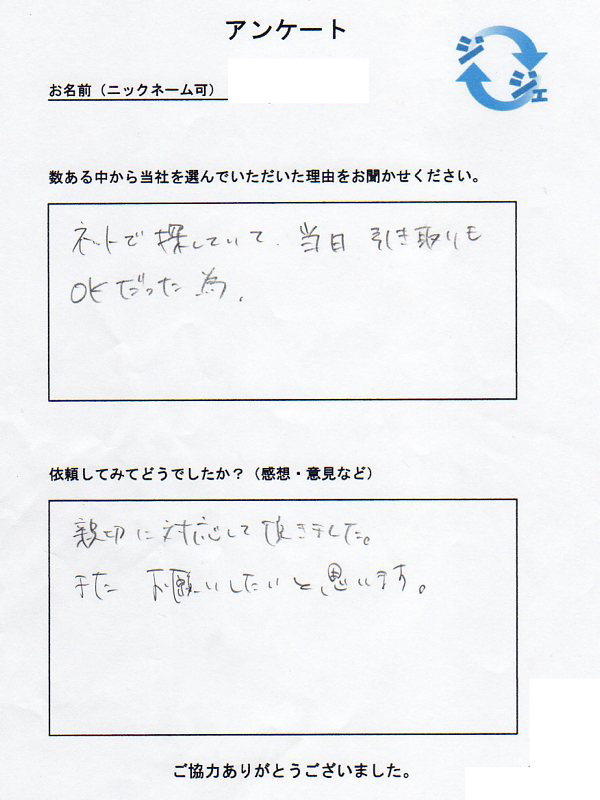 アンケート
ジジェ
お名前（ニックネーム可）
数ある中から当社を選んでいただいた理由をお聞かせください。
ネットで探していて、当日引き取りも
OKだった為、
依頼してみてどうでしたか？（感想・意見など）
親切に対応して頂きました。
また お願いしたいと思います。
ご協力ありがとうございました。